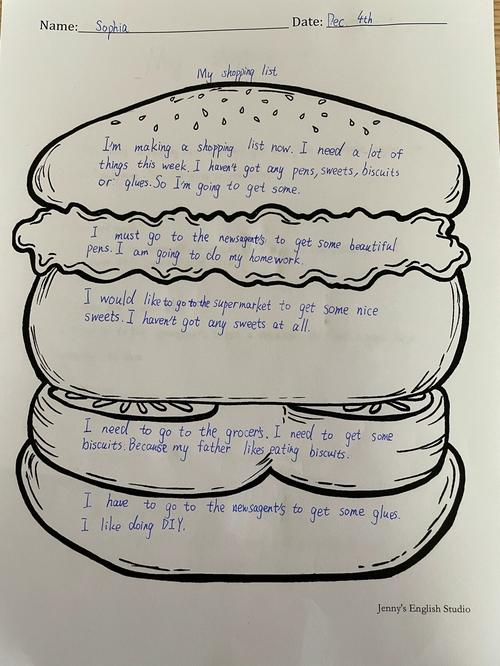 Name: Sophia Date: Dec. 4th
My shopping list
I'm making a shopping list now. I need a lot of
things this week. I haven't got any pens, sweets, biscuits
or glues. So I'm going to get some.
I must go to the newsagent's to get some beautiful
pens. I am going to do my homework.
I would like to go to the supermarket to get some nice
sweets. I haven't got any sweets at all.
I need to go to the grocer's. I need to get some
biscuits. Because my father likes eating biscuits.
I have to go to the newsagent's to get some glues.
I like doing DIY.
Jenny's English Studio